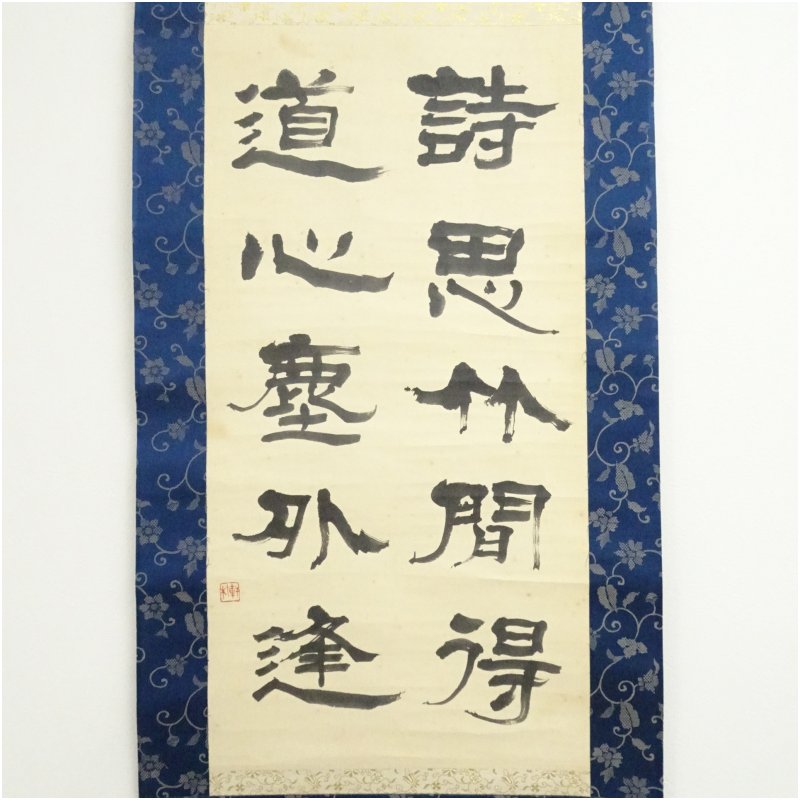 詩思竹間得
道心塵外逢